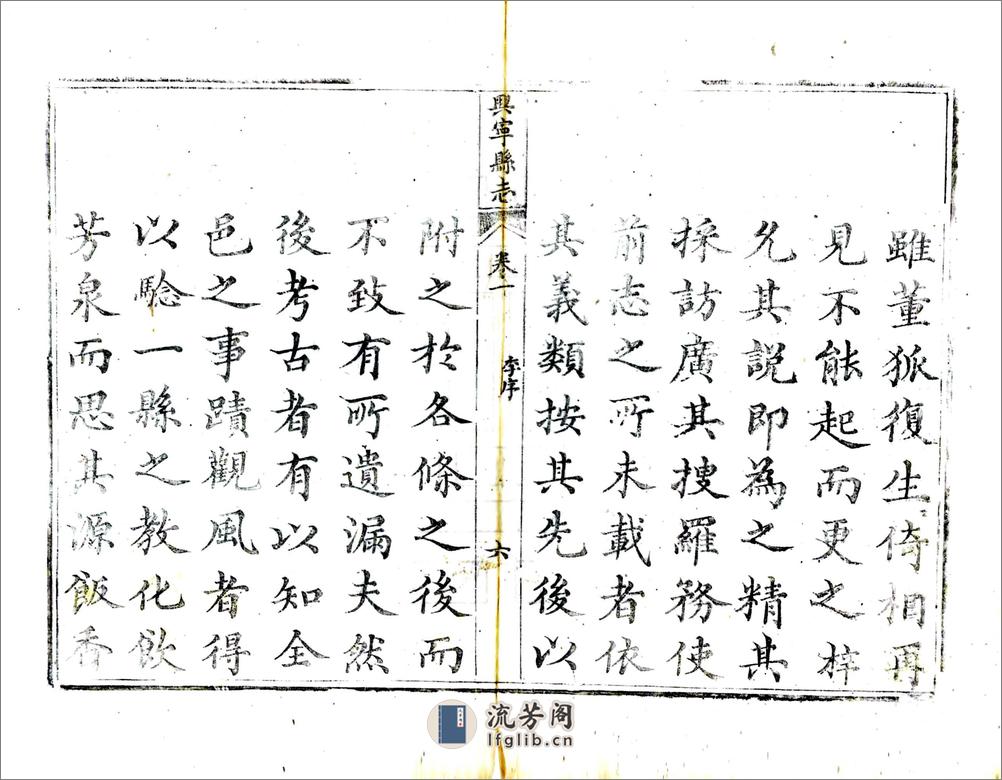 雖董狐復生倚相再
見不能起而更之梓
允其說即為之精其
採訪廣其搜羅務使
前志之所未載者依
其義類按其先後以
興寧縣志
卷一
李序
六
附之於各條之後而
不致有所遺漏夫然
後考古者有以知全
邑之事蹟觀風者得
以驗一縣之教化飲
芳泉而思其源飯香
流芳阁
lfglib.cn